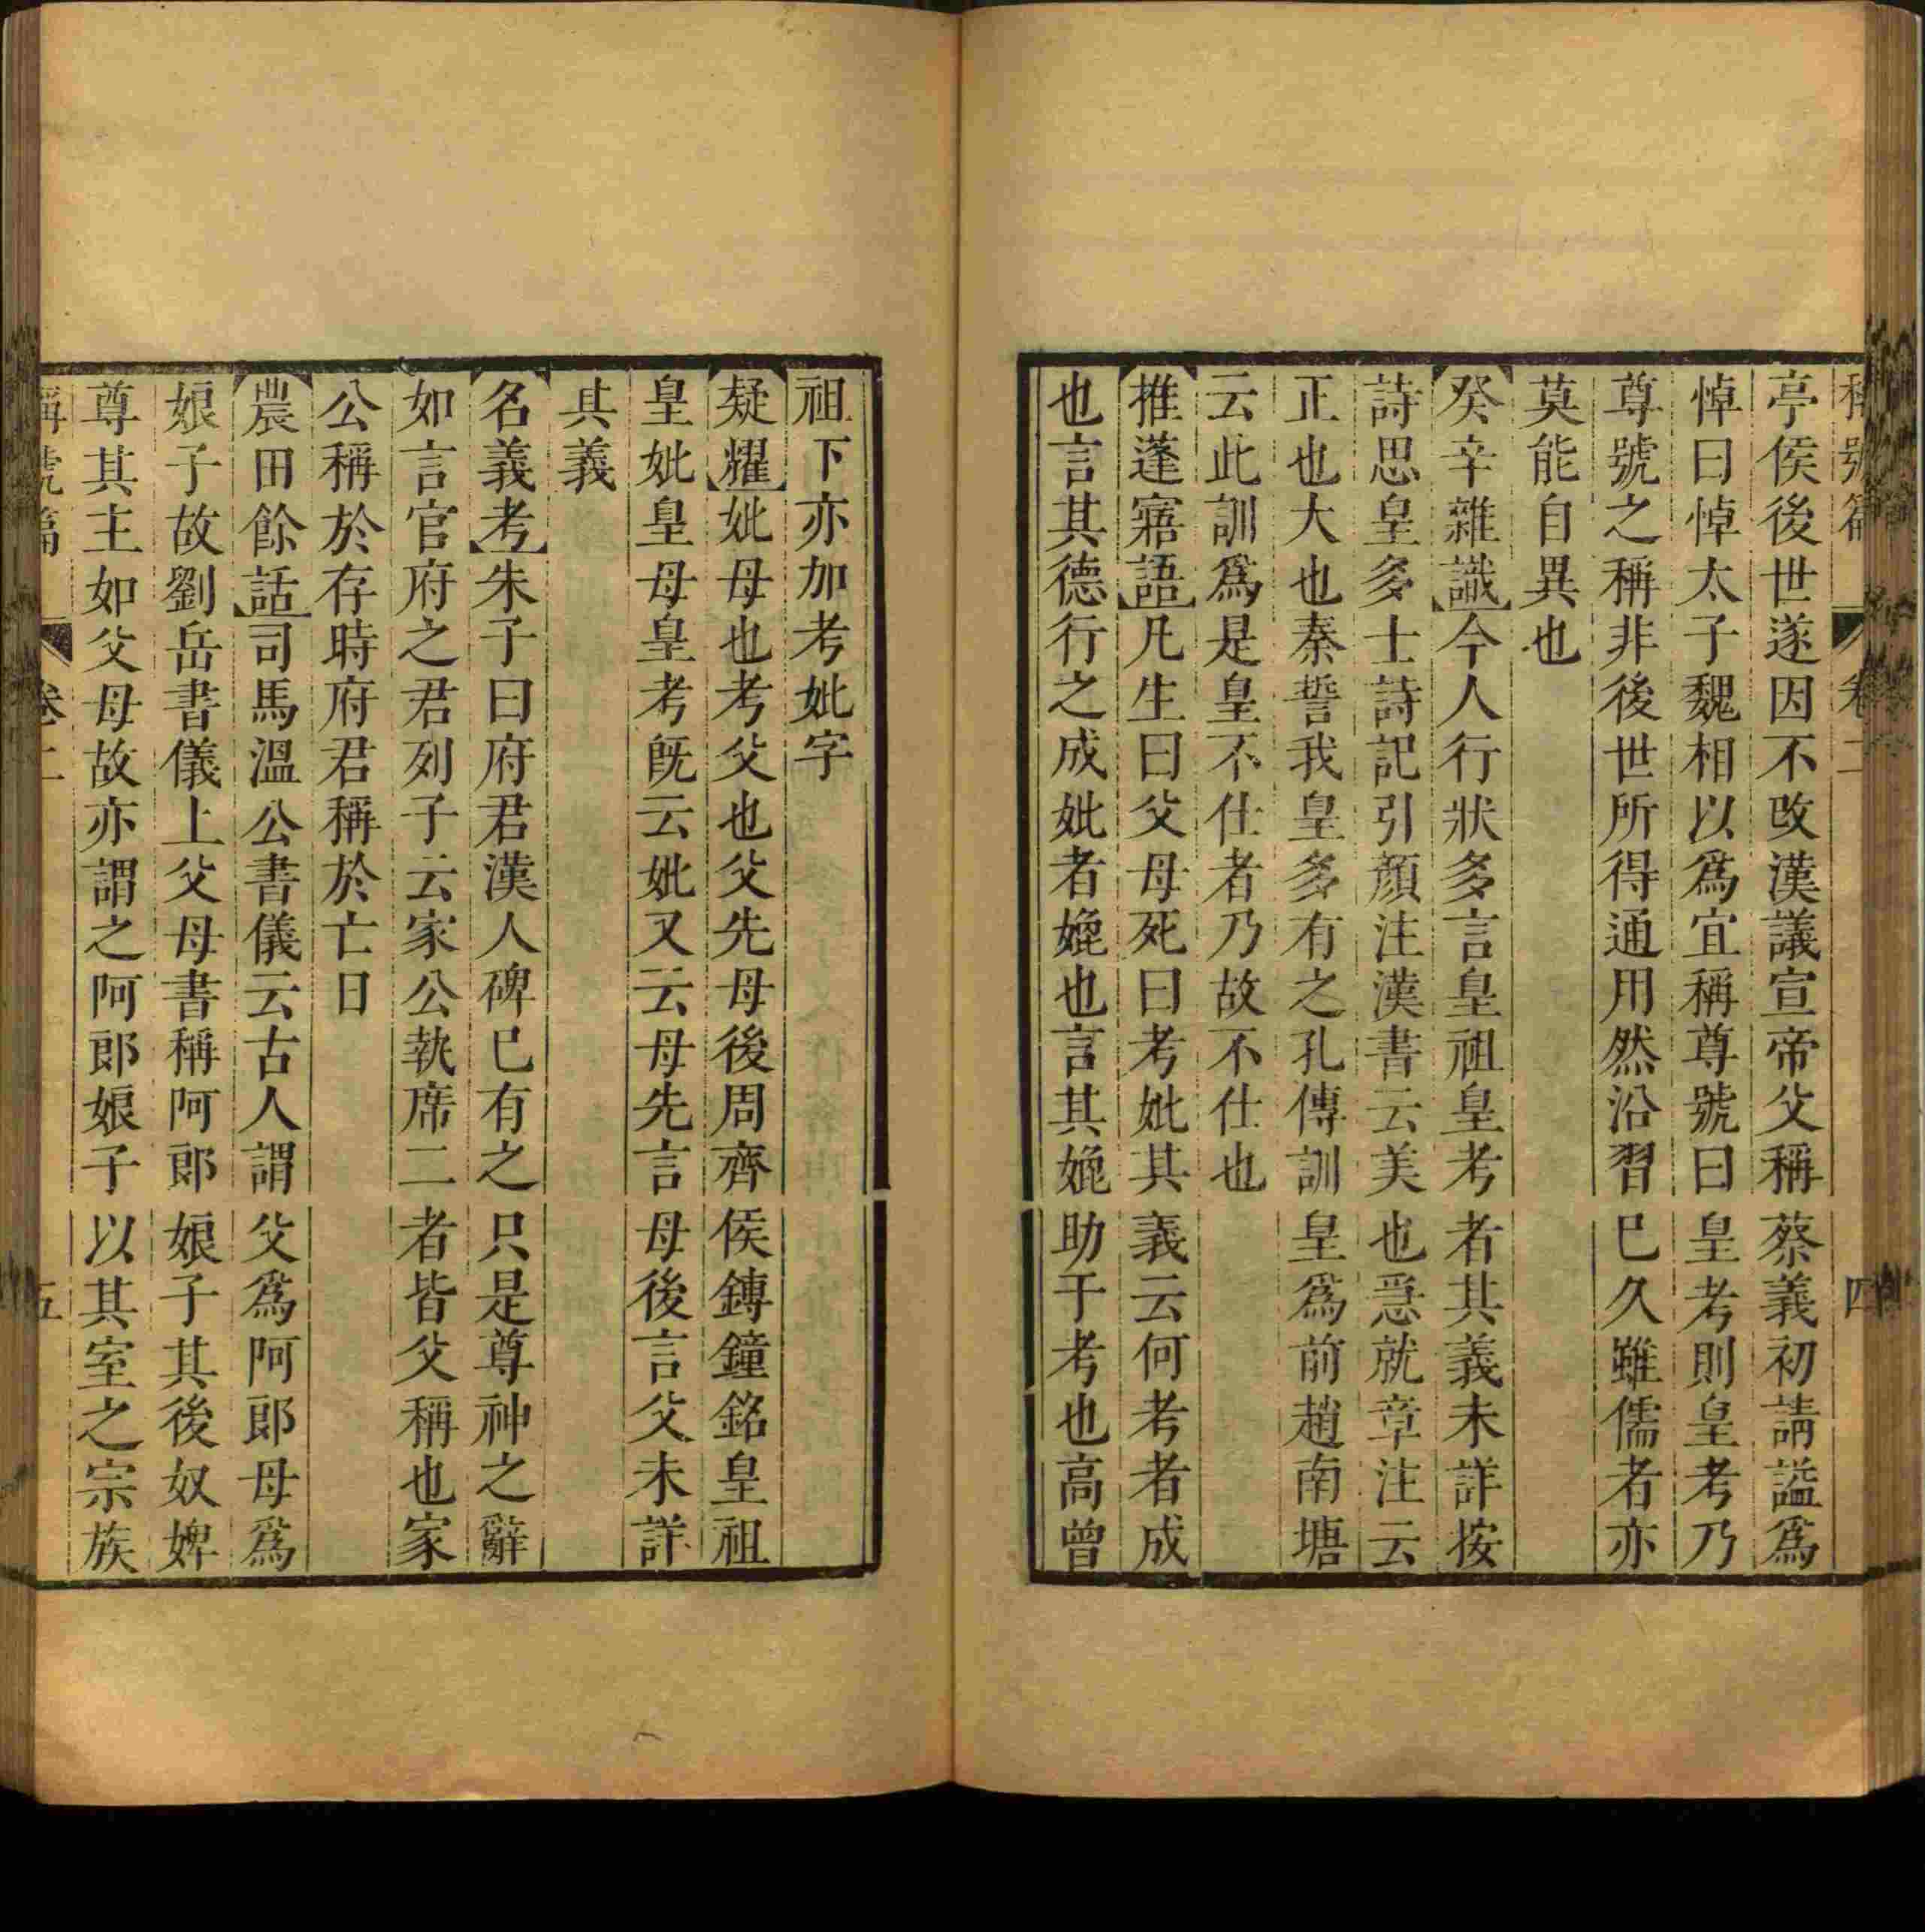 亭侯後世遂因不改漢議宣帝父稱蔡義初請謚爲
悼曰悼太子魏相以爲宜稱尊號曰皇考則皇考乃
尊號之稱非後世所得通用然沿習巳久雖儒者亦
莫能自異也
癸辛雜識今人行狀多言皇祖皇考者其義未詳按
詩思皇多士詩記引顏注漢書云美也急就章注云
正也大也秦誓我皇多有之孔傳訓皇爲前趙南塘
云此訓爲是皇不仕者乃故不仕也
推蓬寤語凡生曰父母死曰考妣其義云何考者成
也言其德行之成妣者媲也言其媲助于考也高曾
祖下亦加考妣字
疑耀妣母也考父也父先母後周齊侯鎛鐘銘皇祖
皇妣皇母皇考旣云妣又云母先言母後言父未詳
其義
名義考朱子曰府君漢人碑巳有之只是尊神之辭
如言官府之君列子云家公執席二者皆父稱也家
公稱於存時府君稱於亡日
農田餘話司馬溫公書儀云古人謂父爲阿郎母爲
娘子故劉岳書儀上父母書稱阿郎娘子其後奴婢
尊其主如父母故亦謂之阿郎娘子以其室之宗族
稱號篇 卷二 五